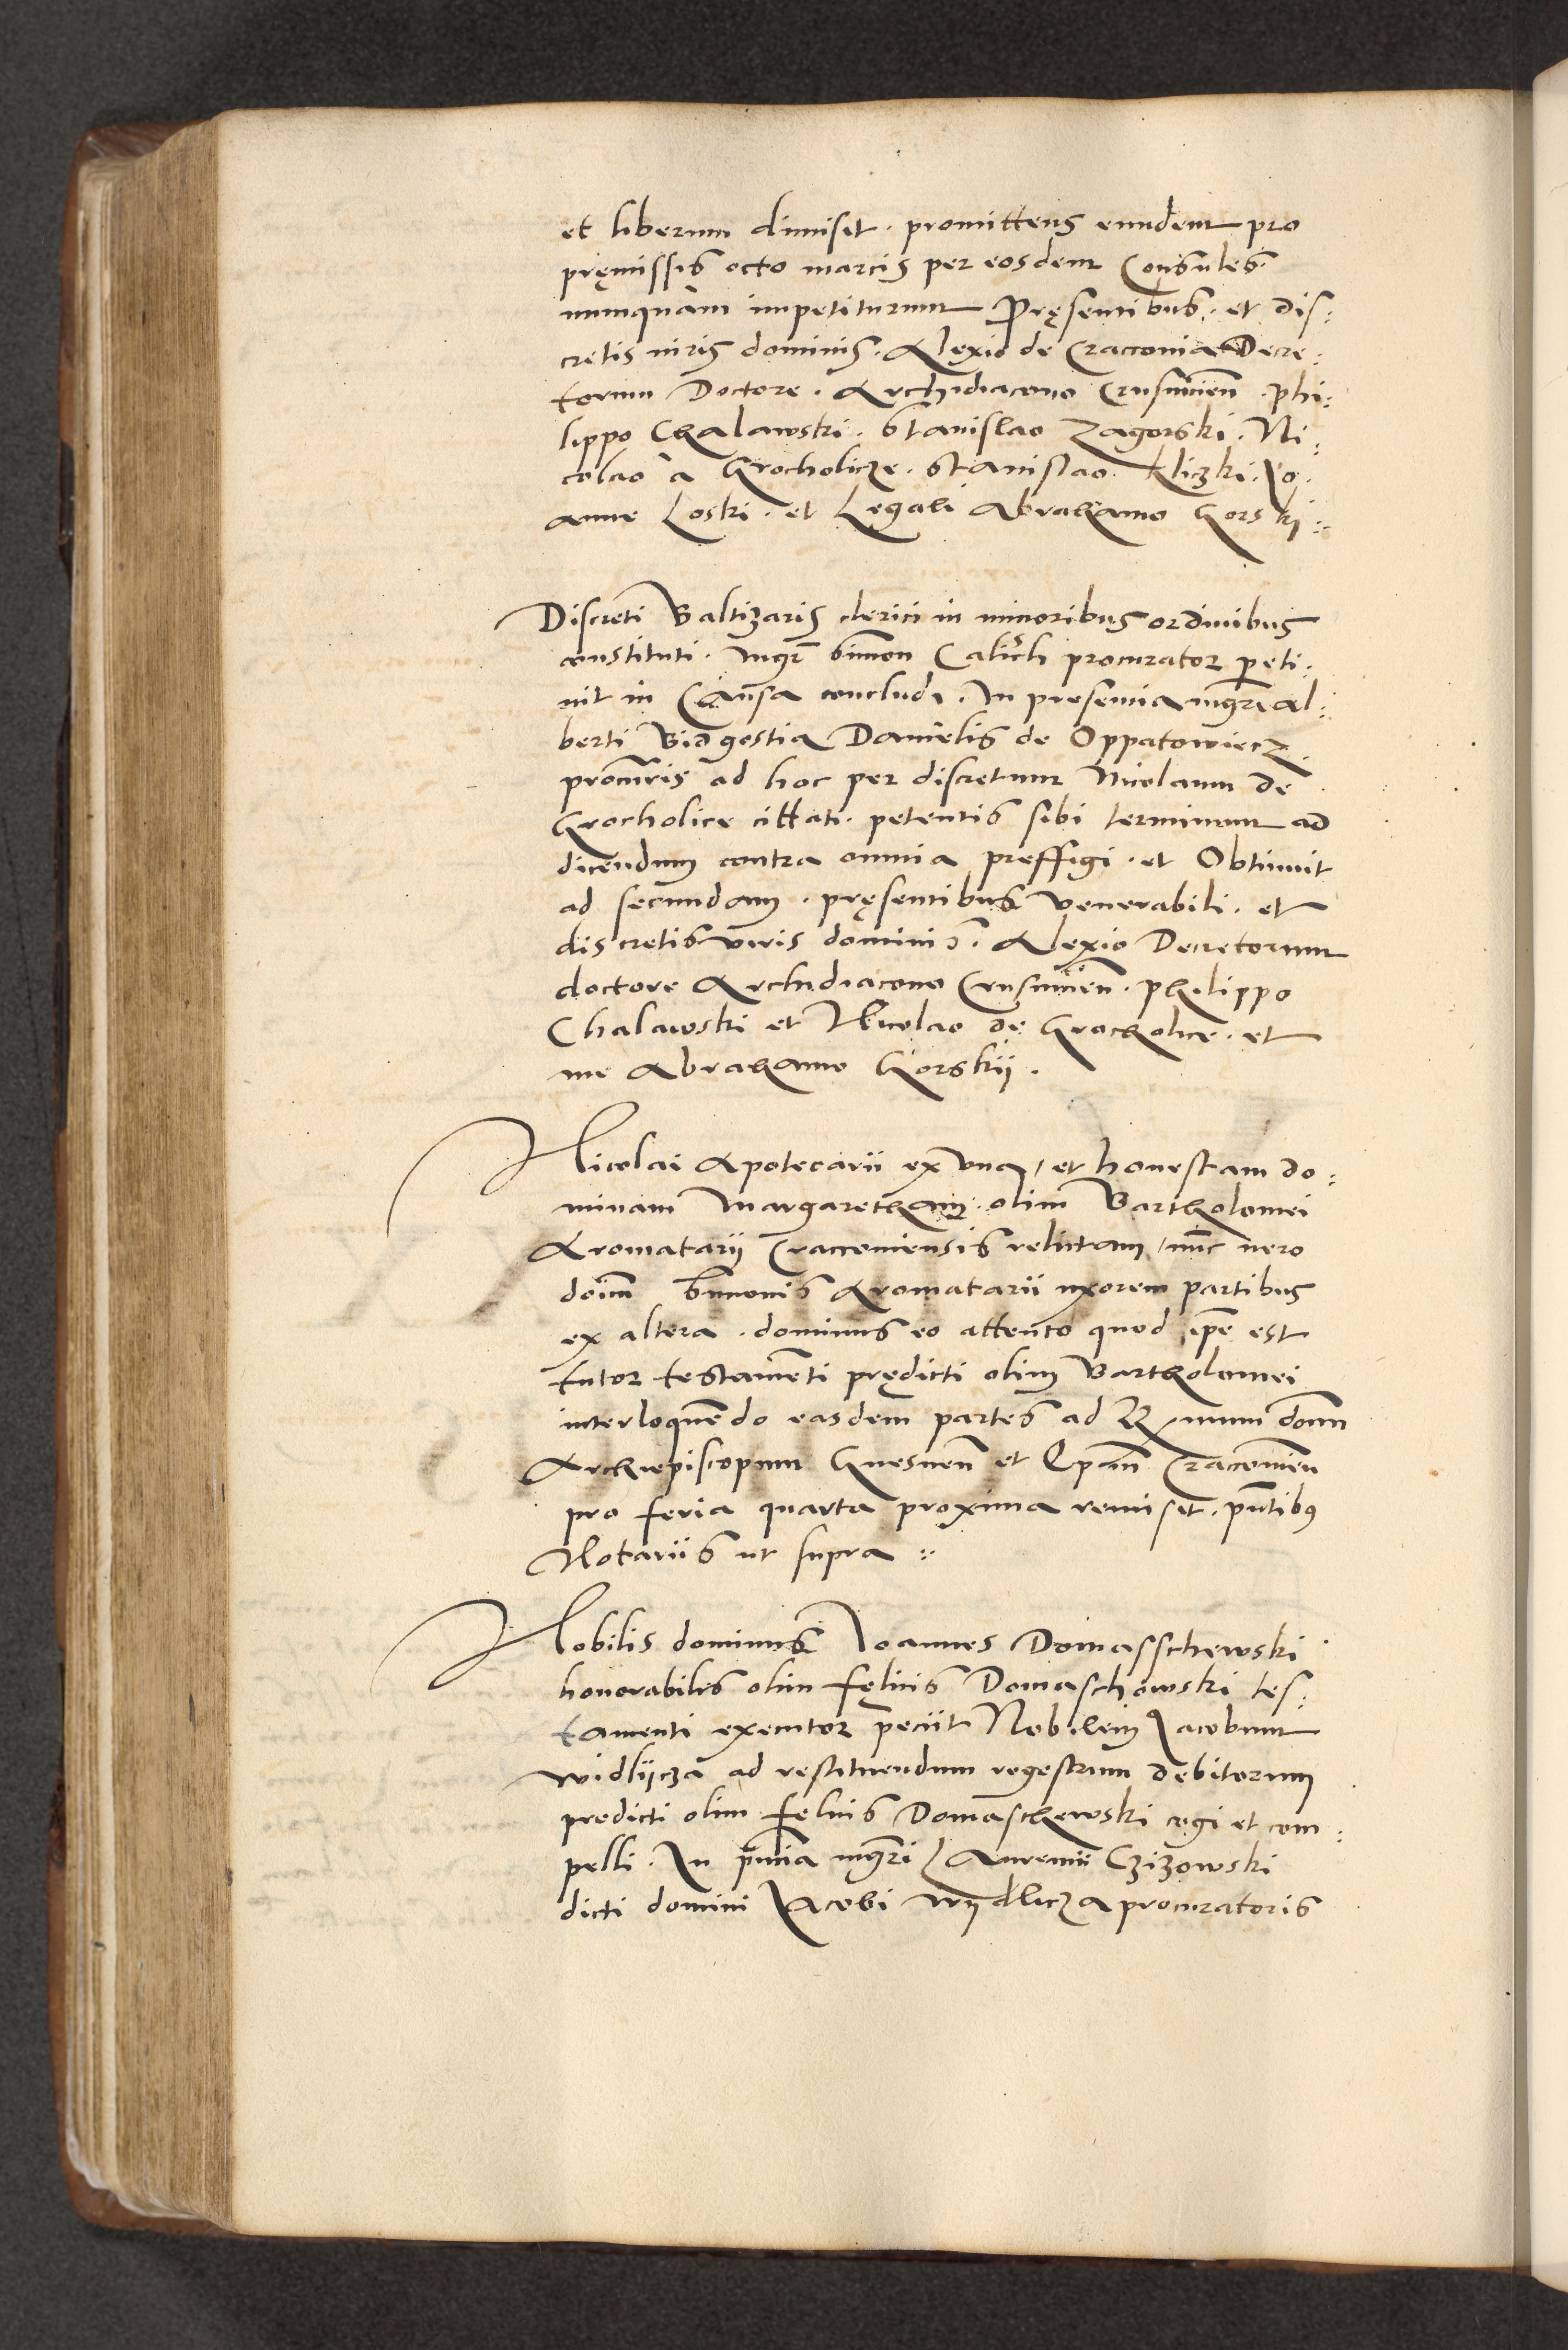 et liberum dimisit. promittens eundem pro
pręmissis octo marcis per eosdem Consules
numquam impetiturum Pręsentibus. et dis:
cretis uiris dominis. Alexio de Craccouia Decre:
torum Doctore. Archidiacono Crusuicien̄. Phi:
lippo Chalawski. Stanislao Zagorski. Ni:
colao a Grocholicze. Stanislao. Kliczki. Jo.
anne Loski. et Legali Abrahamo Gorski::
Discreti Baltizaris clerici in minoribus ordinibus
constituti. mgr̄ Simon Calisch procurator peti:
uit in Causa concludi. In presencia mgr̄i Al:
berti Bidgostia Danielis de Oppatowiecz
procur̄is ad hoc per discretum Nicolaum de
Grocholice cittati. petentis sibi terminum ad
dicendum contra omnia preffigi. et Obtinuit
ad secundam. pręsentibus venerabili. et
discretis viris dominis. Alexio Decretorum
doctore Archidiacono Crusuicien̄. Philippo
Chalawski et Nicolao de Grocholice. et
me Abrahamo Gorskij.
Nicolai Apotecarii ex vna, et honestam do:
minam Margaretham olim Bartholomei
Aromatarij Cracconiensis relictam, nūc uero
doīm Simonis Aromatarii uxorem partibus
ex altera. dominus eo attento quod ip̄e est
tutor testamēti prędicti olim Bartholomei
interloquēdo easdem partes ad R xmum domn̄
Archiepiscopum Gnesnen̄ et Ep̄um Craccouien̄
pro feria quarta proxima remisit. pn̄tibus
Notariis ut supra ::
Nobilis dominus Joannes Domasschewski
honorabilis olim Fęlicis Domaschowski tes:
tamenti executor peciit Nobilem Jacobum
widlijcza ad restituendum regestrum debitorum
predicti olim Felicis Domaschewski cogi et com:
pelli. In pn̄cia mgr̄i Laurencii Czizowski
dicti domini Jacobi wydlicza procuratoris